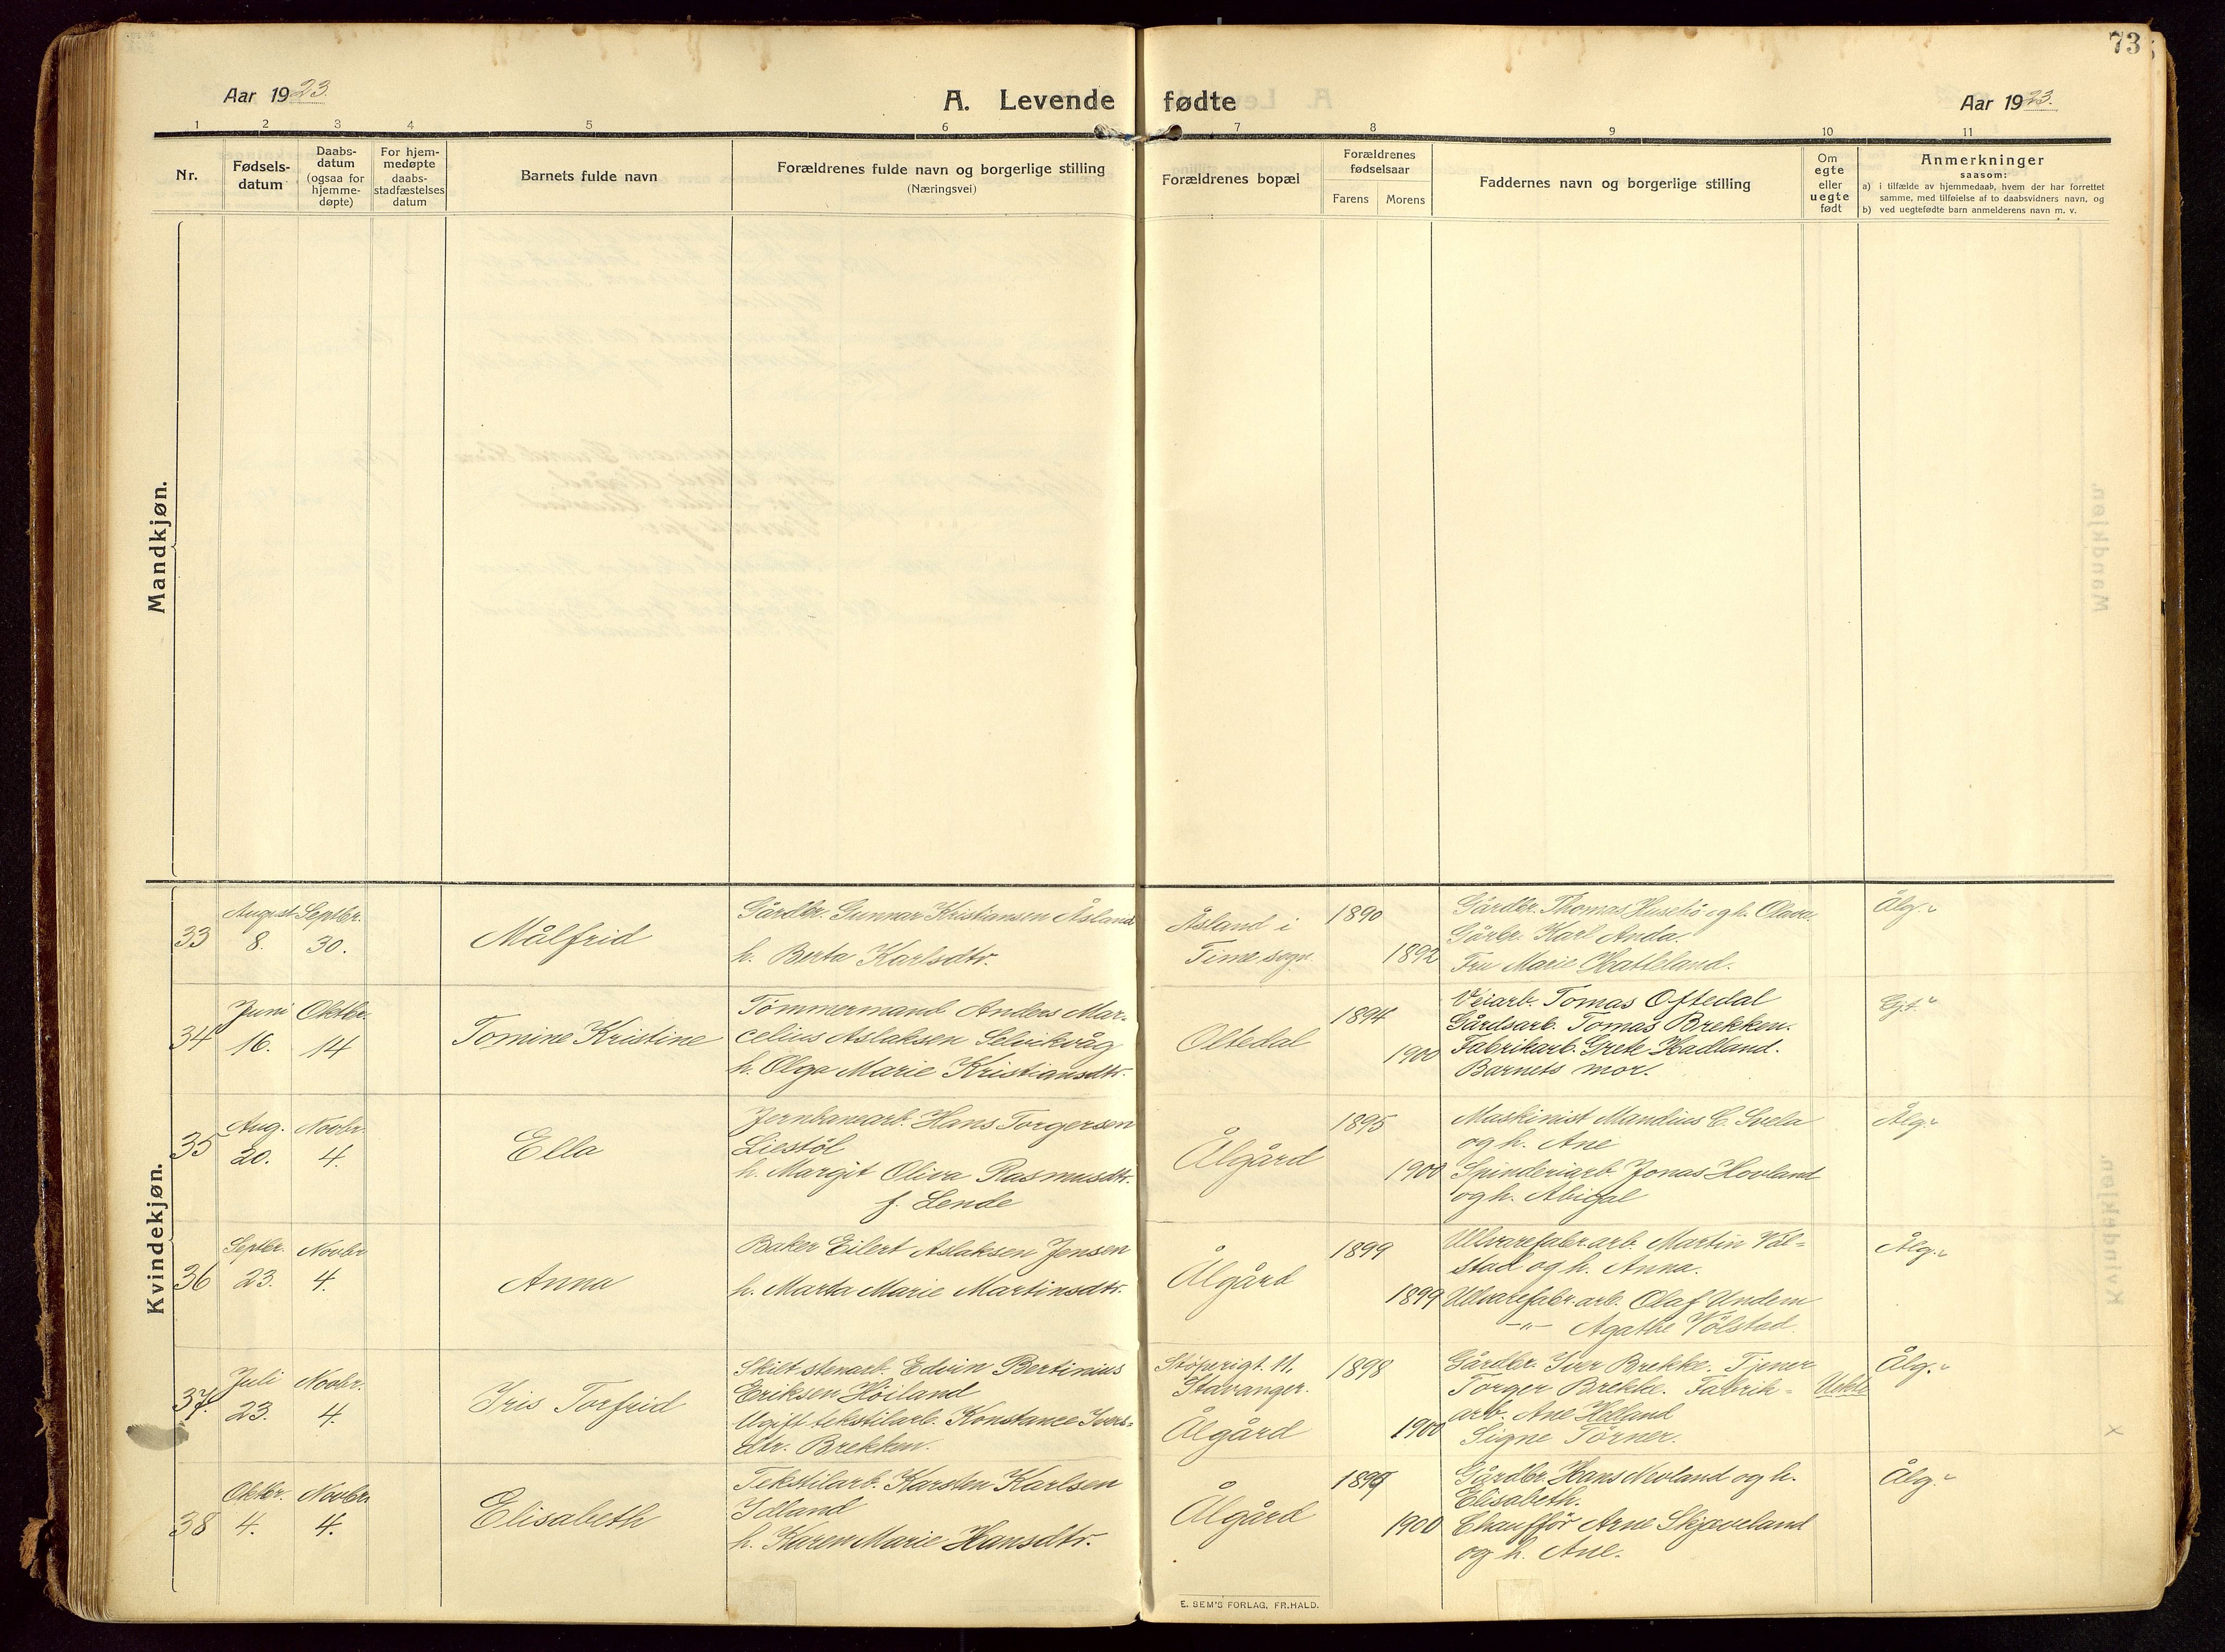 73
Aar 1923.
A. Levende fødte
Aar 1923.
1 2 3 4 5 6 7 8 9 10 11
Nr.
Fødsels-
datum
Daabs-
datum
(ogsaa for
hjemme-
døpte)
For hjem-
medøpte
daabs-
stadfæstelses
datum
Barnets fulde navn
Forældrenes fulde navn og borgerlige stilling
(Næringsvei)
Forældrenes bopæl
Forældrenes
fødselsaar
Farens Morens
Faddernes navn og borgerlige stilling
Om
egte
eller
uegte
født
Anmerkninger
saasom:
a) i tilfælde av hjemmedaab, hvem der har forrettet
samme, med tilføielse af to daabsvidners navn, og
b) ved uegtefødte barn anmelderens navn m. v.
Mandkjøn.
Kvindekjøn.
33
August
8.
Septbr.
30.
Målfrid
Gårdbr. Gunnar Kristiansen Åsland
h. Berta Karlsdtr.
Åsland i
Time sogn
1890
1892
Gårdbr. Thomas Husebö og h. Olava.
Gårbr. Karl Anda.
Fru Marie Hatleland.
Ålg.
34
Juni
16.
Oktbr.
14
Tomine Kristine
Tömmermand Anders Mar-
celius Aslaksen Selvikvåg
h. Olga Marie Kristiansdtr.
Oltedal
1894
1900
Veiarb. Tomas Oftedal
Gårdsarb. Tomas Brekken.
Fabrikarb. Grete Hadland.
Barnets mor.
Gjt.
35
Aug.
20.
Novbr.
4.
Ella
Jernbanearb. Hans Torgersen
Liestöl
h. Margit Oliva Rasmusdtr.
f. Lende
Ålgård
1895
1900
Maskinist Mandius C. Svela
og h. Ane
Spinderiarb. Jonas Hovland
og h. Abigal
Ålg.
36
Septbr.
23.
Novbr
4.
Anna
Baker Eilert Aslaksen Jensen
h. Marta Marie Martinsdtr.
Ålgård
1899
1899
Ullvarefabr.arb. Martin Vål-
stad og h. Anna.
Ullvarefabr.arb. Olaf Undem
-"- Agathe Völstad.
Ålg.
37.
Juli
23.
Novbr.
4.
Iris Torfrid
Skilt stenarb. Edvin Bertinius
Eriksen Höiland
Ugift tekstilarb. Konstance Ivers-
dtr. Brekken.
Stöperigt. 11,
Stavanger.
Ålgård
1898
1900
Gårdbr. Iver Brekke. Tjener
Torger Brekke. Fabrik-
arb. Ane Holland
Signe Törner.
Uekte
Ålg.
38
Oktbr.
4.
Novbr.
4.
Elisabeth
Tekstilarb. Karsten Karlsen
Idland
h. Karen Marie Hansdtr.
Ålgård
1900
Gårdbr. Hans Nevland og h.
Elisabeth.
Chaufför Arne Skjæveland
og h. Ane.
Ålg.
E. SEM'S FORLAG, FR.HALD.